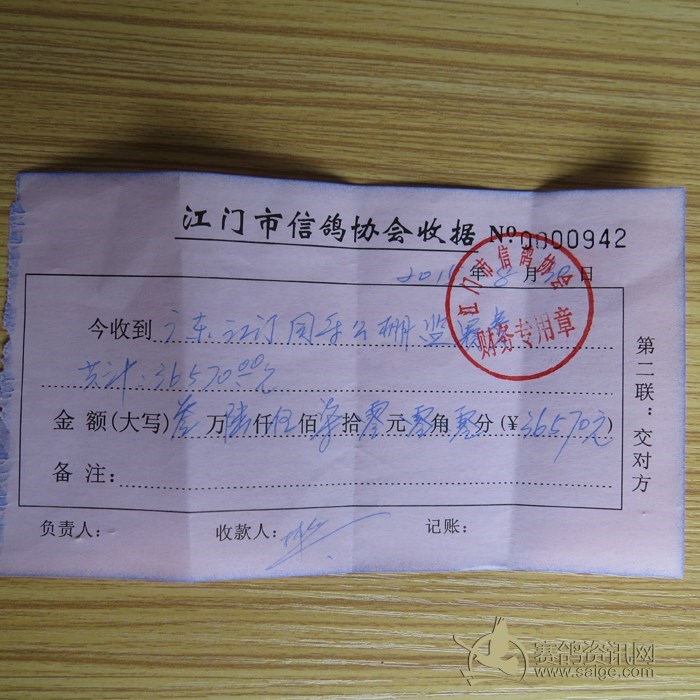 江门市信鸽协会收据 Nº 0000942
年8月28日
今收到广东江门同乐公棚监赛费
共计:36570.00元
金额(大写)叁万陆仟伍佰柒拾零元零角零分(¥36570元)
备注:
负责人: 收款人: 记账:
第二联:交对方
江门市信鸽协会
财务专用章
赛鸽资讯网
www.saige.com